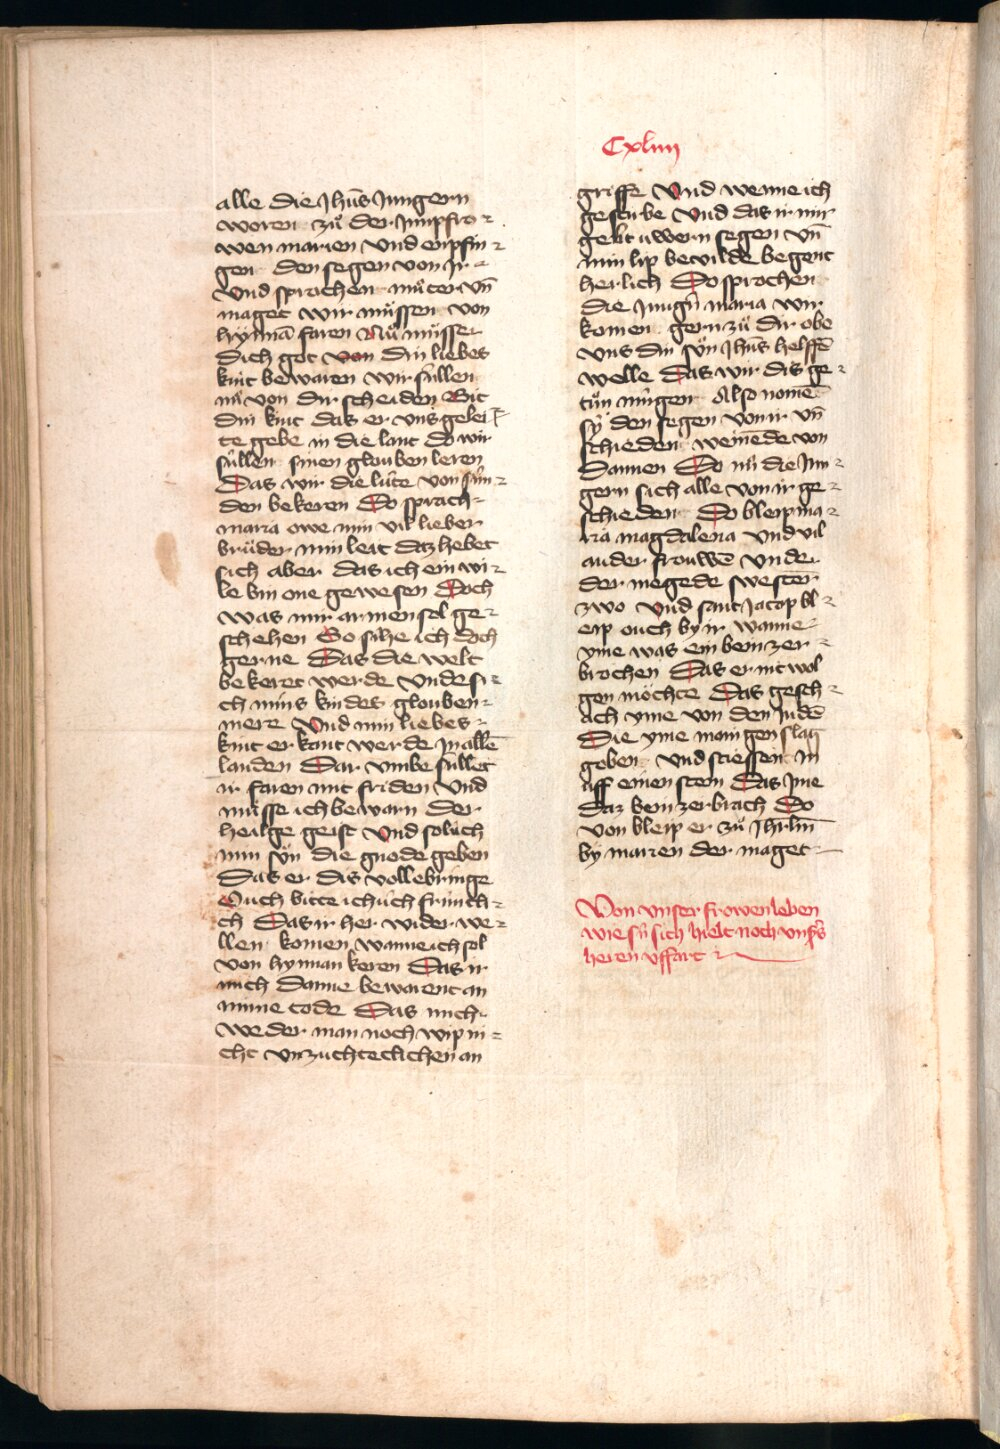 Cxliiij
alle die Jhūs Jungern
woren zů der Jmpfro⸗
wen marien Vnd enpfin⸗
gen den segen von Jr⸗
Vnd sprachen můter vn̄
maget wir můssen von
hynnā faren Nů můsse
dich got von din liebes
kint bewaren wir sullen
nů von dir scheiden Bit
din kint das er vns gelei⸗
te gebe in die lant do wir
süllen sinen glouben leren
Das wir die lüte von sün⸗
den bekeren Do sprach⸗
maria owe min vil lieber
brüder min leit daz hebet
sich aber das ich ein wi⸗
le bin one gewesen Doch
was mir armen sol ge⸗
schehen So sihe ich doch
gerne Das die welt
bekeret werde Vnde si⸗
ch mins kindes glouben⸗
mere Vnd min liebes⸗
kint erkant werde Jn allē
landen Dar vmbe süllet
ir faren mit friden Vnd
můsse ich bewarn der
heilge geist Vnd soluch
min sůn die gnode geben
Das er das vollebringe
Ouch bitte ich üch früntli⸗
ch Das ir her wider we⸗
llen komen wanne ich sol
von hynnan keren Das ir
mich danne bewarent an
mime tode Das mich
weder man noch wip ni⸗
cht vnzuchteclichen an
griffe Vnd wenne ich
gesturbe Vnd das ir mir
gebt uwern segen vn̄
min lip bevilde begent
herlich Do sprochen
die Jungn̄ maria wir
komen gern zů dir obe
vns din sůn Jhūs helffē
welle Das wir dis ge⸗
tůn mügen Also nomē
sy den segen von ir vn̄
schieden weinēde von
dannen Do nů die Jun⸗
gern sich alle von ir ge⸗
schieden Do bleip ma⸗
ria magdalena Vnd vil
ander frouwē Vnder
der megede swester
zwo Vnd sant Jacop bl⸗
eip ouch by ir wanne
yme was ein bein zer⸗
brochen Das er nit wol
gon möchte Das gesch⸗
ach yme von den Judē
Die yme manigen slag
goben Vnd stiessen in
uff einen stein Das Jme
daz bein zerbrach Do
von bleip er zů Jhrlm̄
by marien der maget
Von vnser frowen leben
wie sü sich hielt noch vnsers
heren vffart